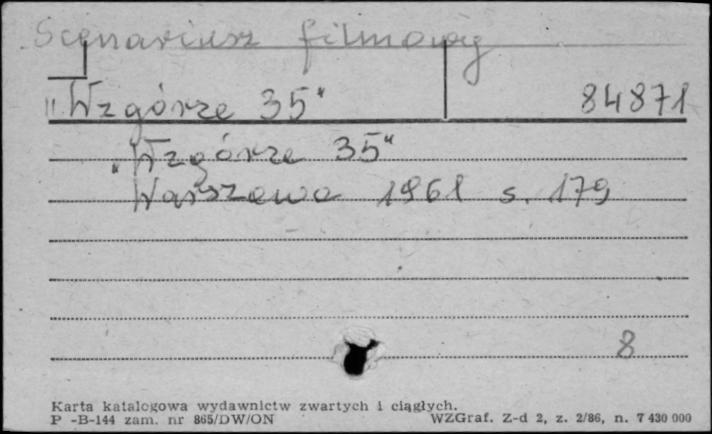 Scenariusz filmowy
"Wzgórze 35" 84871
"Wzgórze 35"
Warszawa 1961 s. 179
8
Karta katalogowa wydawnictw zwartych i ciągłych.
P -B-144 zam. nr 865/DW/ON WZGraf. Z-d 2, z. 2/86, n. 7 430 000